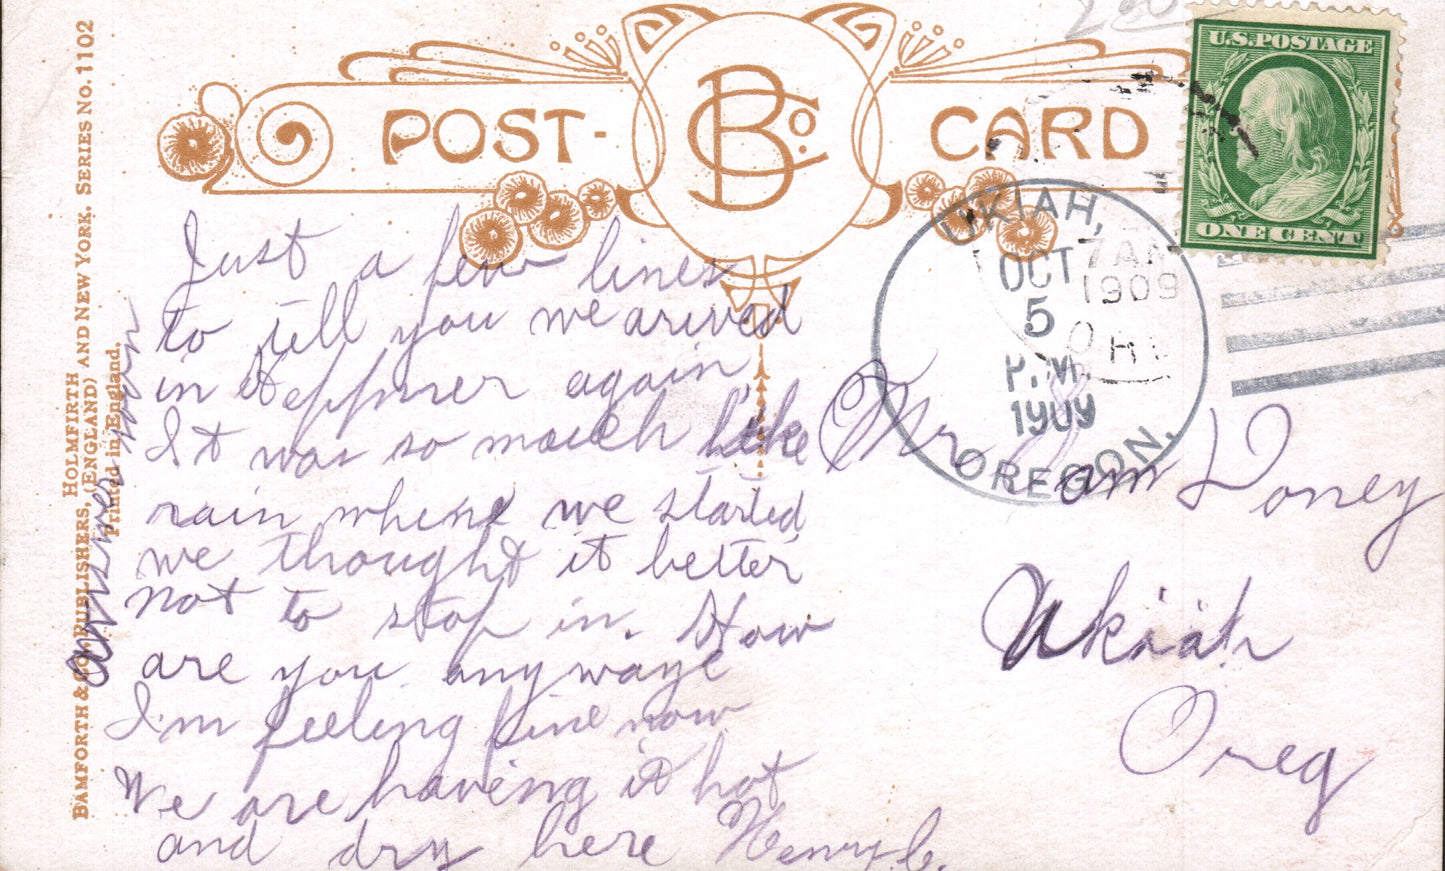 POST-CARD
BCo.
U.S. POSTAGE
ONE CENT
UKIAH,
OCT
5
P.M.
1909
OREGON.
7 AM
1909
Just a few lines
to till you we arived
in Heppner again
It was so much like
rain where we started
we thought it better
not to stop in. How
are you any waye
I'm feeling fine now
We are having it hot
and dry here Henry C.
answer soon
Mr Sam Doney
Ukiah
Oreg
BAMFORTH & CO., PUBLISHERS, HOLMFIRTH (ENGLAND) AND NEW YORK. SERIES No. 1102
Printed in England.